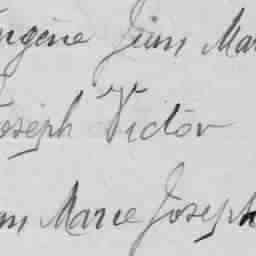 Eugène Jean Mar
Joseph Victor
Marie Joseph